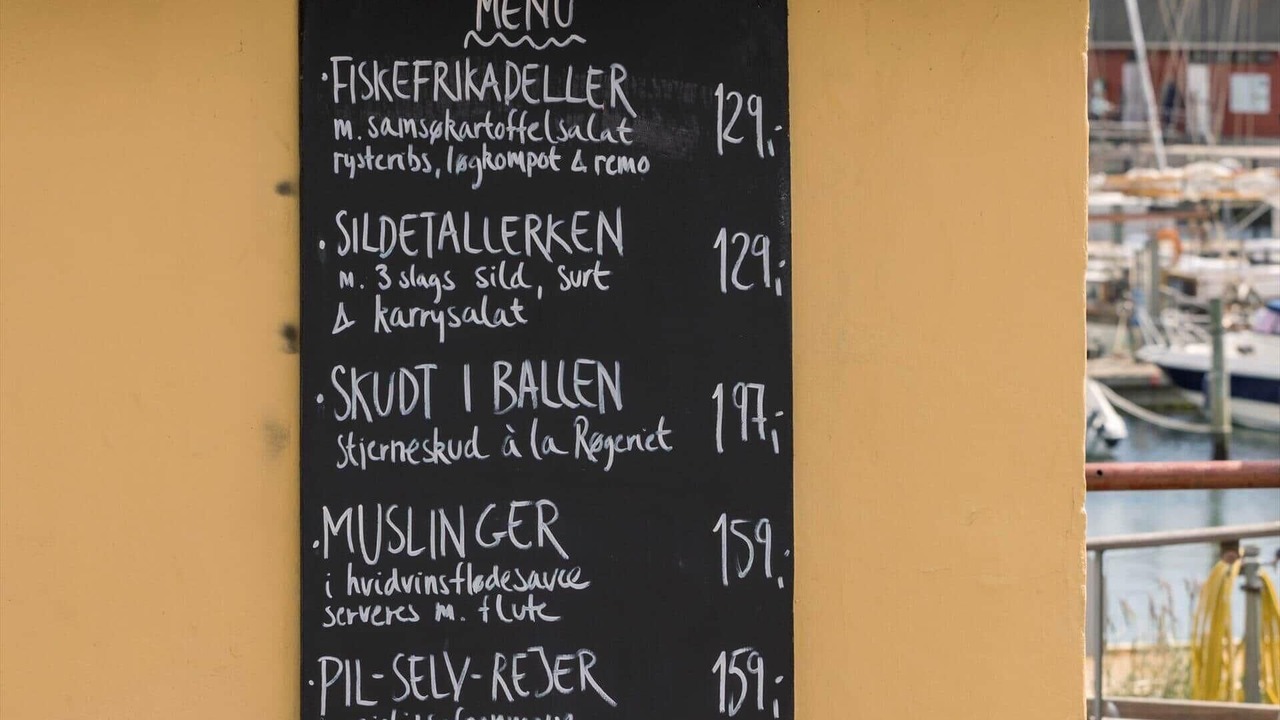 MENU
·FISKEFRIKADELLER 129,-
m. samsøkartoffelsalat
rysteribs, løgkompot & remo
·SILDETALLERKEN 129,-
m. 3 slags sild, surt
& karrysalat
·SKUDT I BALLEN 197,-
stjerneskud à la Røgeriet
·MUSLINGER 159,-
i hvidvinsflødesauce
serveres m. flute
·PIL-SELV-REJER 159,-